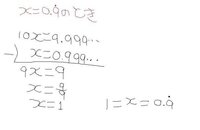 x=0.9̇のとき
10x=9.999…
－) x=0.999…
9x=9
x=9/9
x=1
1=x=0.9̇